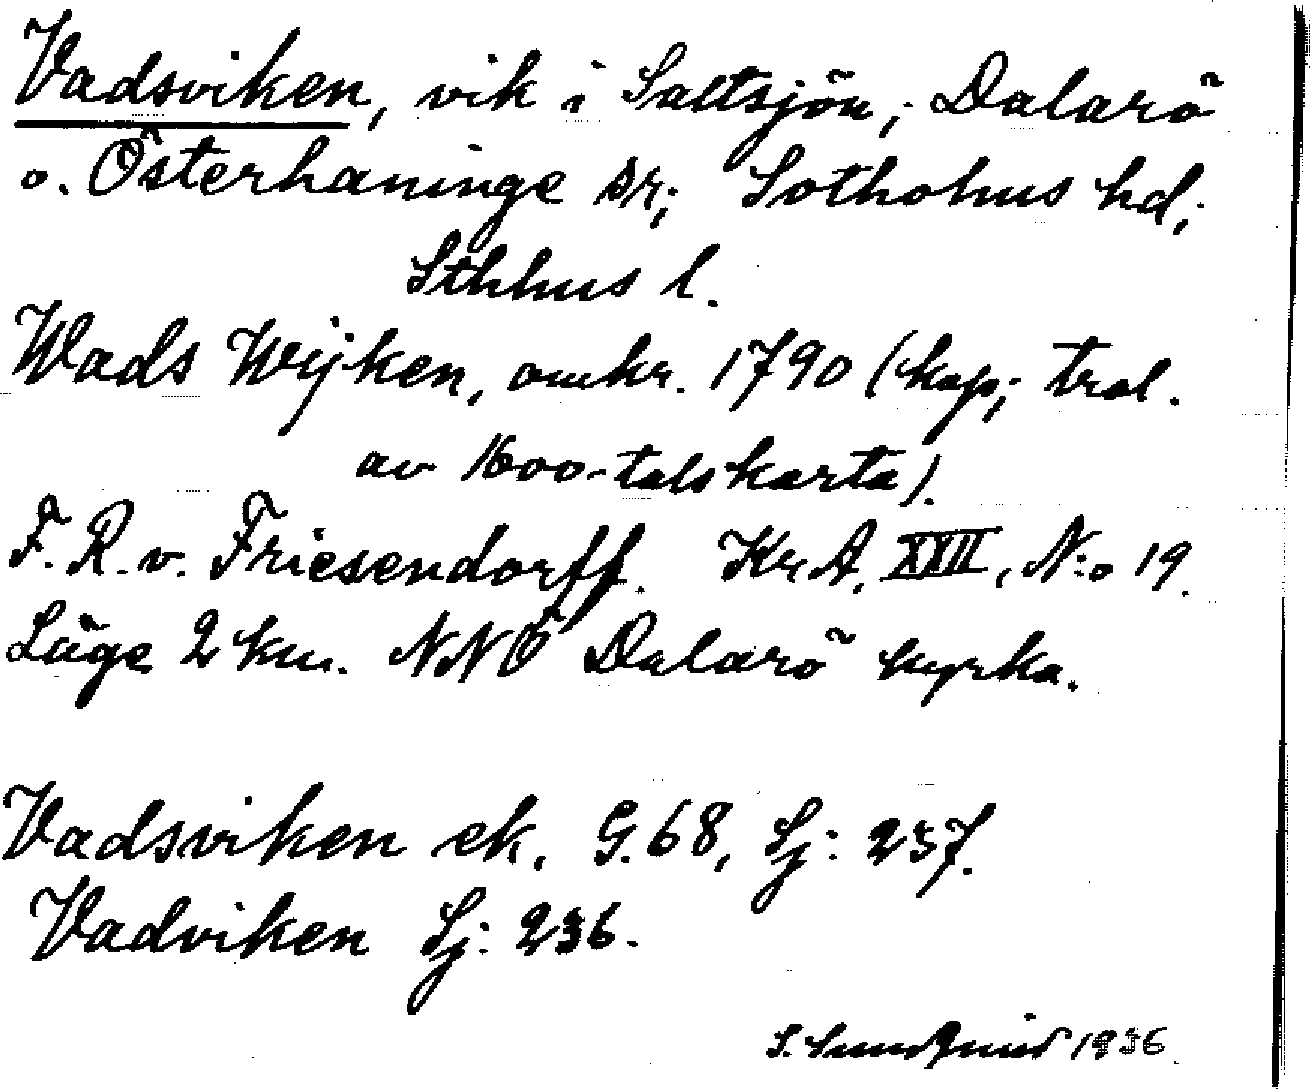 Vadsviken, vik i Saltsjön, Dalarö
o. Österhaninge sr; Sotholms hd,
Sthlms l.
Wads Wijken, omkr. 1790 (kop; trol.
av 1600-talskarta).
F. R. v. Friesendorff. Kr A. XXII, N:o 19.
Läge 2 km. NNÖ Dalarö kyrka.
Vadsviken ek. G. 68, Sj: 237.
Vadviken Sj: 236.
S. 1936